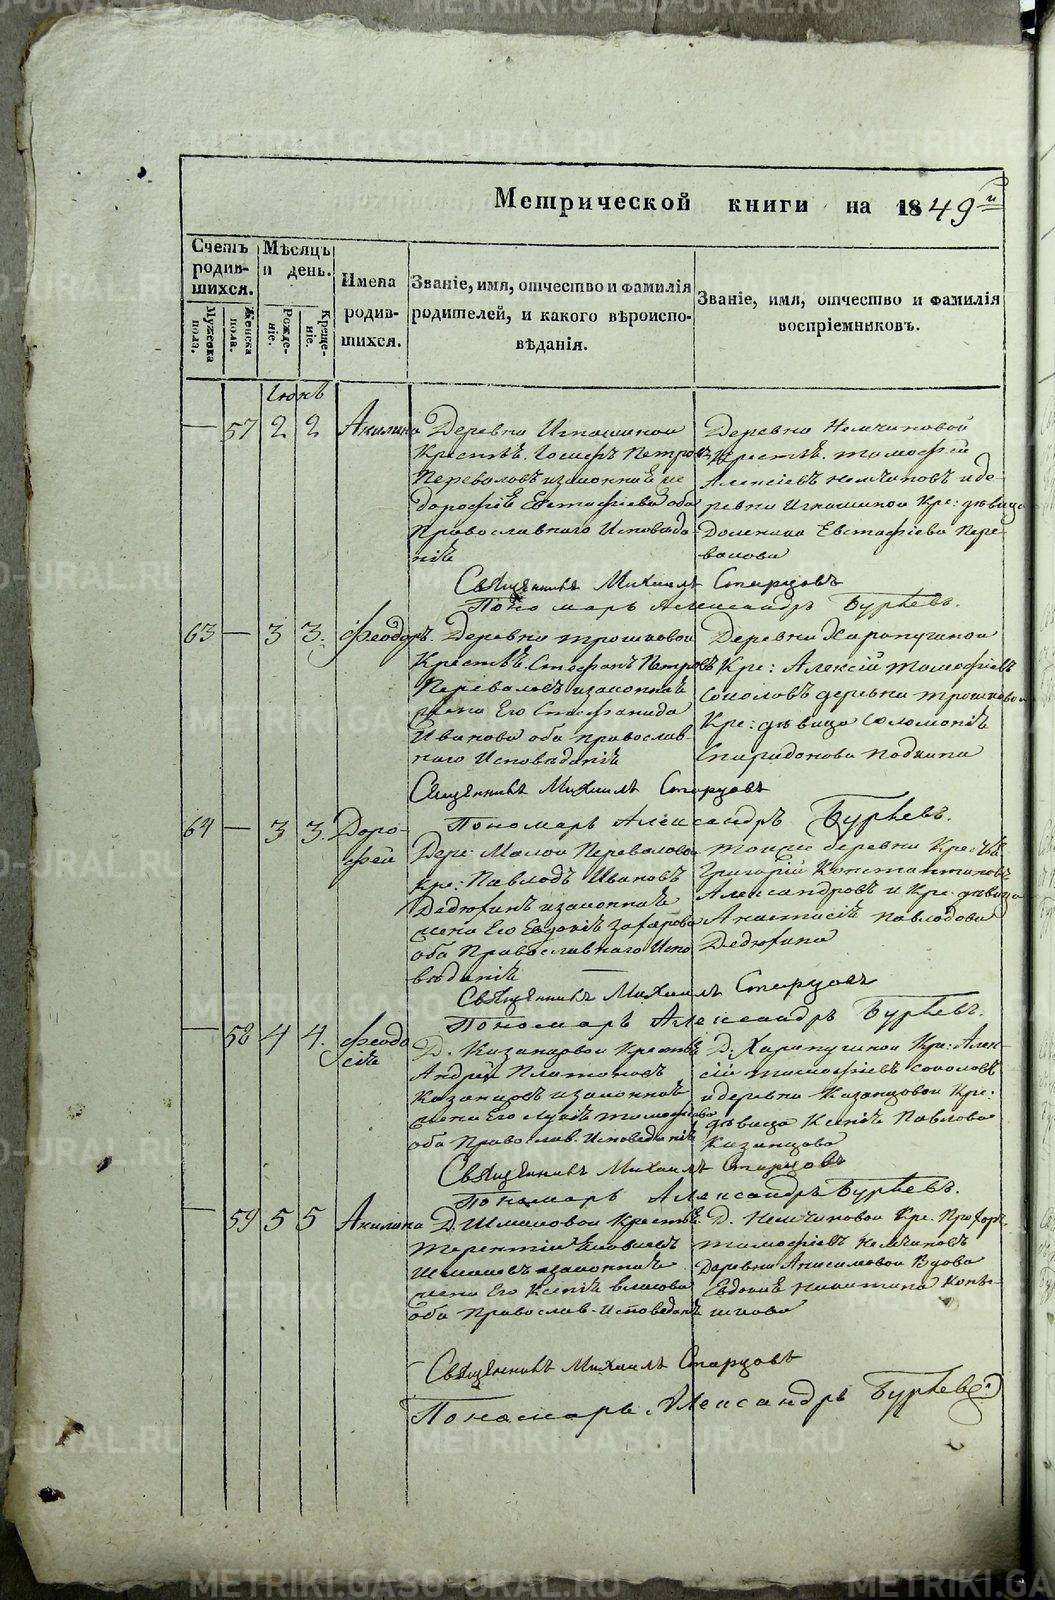 Метрической книги на 1849й
Счетъ родившихся.
Мужеска пола.
Женска пола.
Мѣсяцъ и день.
Рожденіе.
Крещеніе.
Имена родившихся.
Званіе, имя, отчество и фамилія родителей, и какого вѣроисповѣданія.
Званіе, имя, отчество и фамилія воспріемниковъ.
Іюнь
— 57 2 2 Акилина
Деревни Игнашиной
Крестьн. Іосифъ Петровъ
Переваловъ и законная
Дорофія Евстафіева оба
Православнаго Исповѣда-
нія
Деревни Немчиновой
Крестьн. Тимофей
Алексіевъ Немчиновъ и де-
ревни Игнашиной Кре: дѣвица
Домника Евстафіева Пере-
валова
Священникъ Михаилъ Старцовъ
Пономарь Александръ Бурневъ.
63 — 3 3. Феодоръ.
Деревни Трошковой
Крестьн. Стефанъ Петровъ
Переваловъ и законная
жена Его Стефанида
Иванова оба православ-
наго Исповѣданія
Деревни Харапугиной
Кре: Алексій Тимофіевъ
Соколовъ деревни Трошковой
Кре: дѣвица Соломонія
Спиридонова Подкина
Священникъ Михаилъ Старцовъ
Пономарь Александръ Бурневъ.
64 — 3 3. Доро-
фей
Дере: Малой Переваловой
Кре: Павлодъ Ивановъ
Дедюхинъ и законная
жена Его Евдокія Захарова
оба Православнаго Испо
вѣданія —
Тойже деревни Кре:
Григорій Константиновъ
Александровъ и Кре: дѣвица
Анастасія Павлодова
Дедюхина
Священникъ Михаилъ Старцовъ
Пономарь Александръ Бурневъ.
— 58 4 4. Феодо
сія
Д. Казанцовой Крестьн.
Андрей Платоновъ
Казанцовъ и законная
жена Его Лукія Тимофіева
оба Православ. Исповеданія
Д. Харапугиной Кре: Алек-
сій Тимофіевъ Соколовъ
и деревни Казанцовой Кре:
дѣвица Ксенія Павлова
Казанцова
Священникъ Михаилъ Старцовъ
Пономарь Александръ Бурневъ.
— 59 5 5 Акилина
Д. Шмаковой Крестьн.
Терентій Яковлевъ
Шмаковъ законная
жена Его Ксенія Власова
оба Православ. Исповеданія
Д. Немчиновой Кре. Прохоръ
Тимофіевъ Немчиновъ
Деревни Анисимовой Вдова
Евдокія Никитина Конь-
шкова
Священникъ Михаилъ Старцовъ
Пономарь Александръ Бурневъ
METRIKI.GASO-URAL.RU